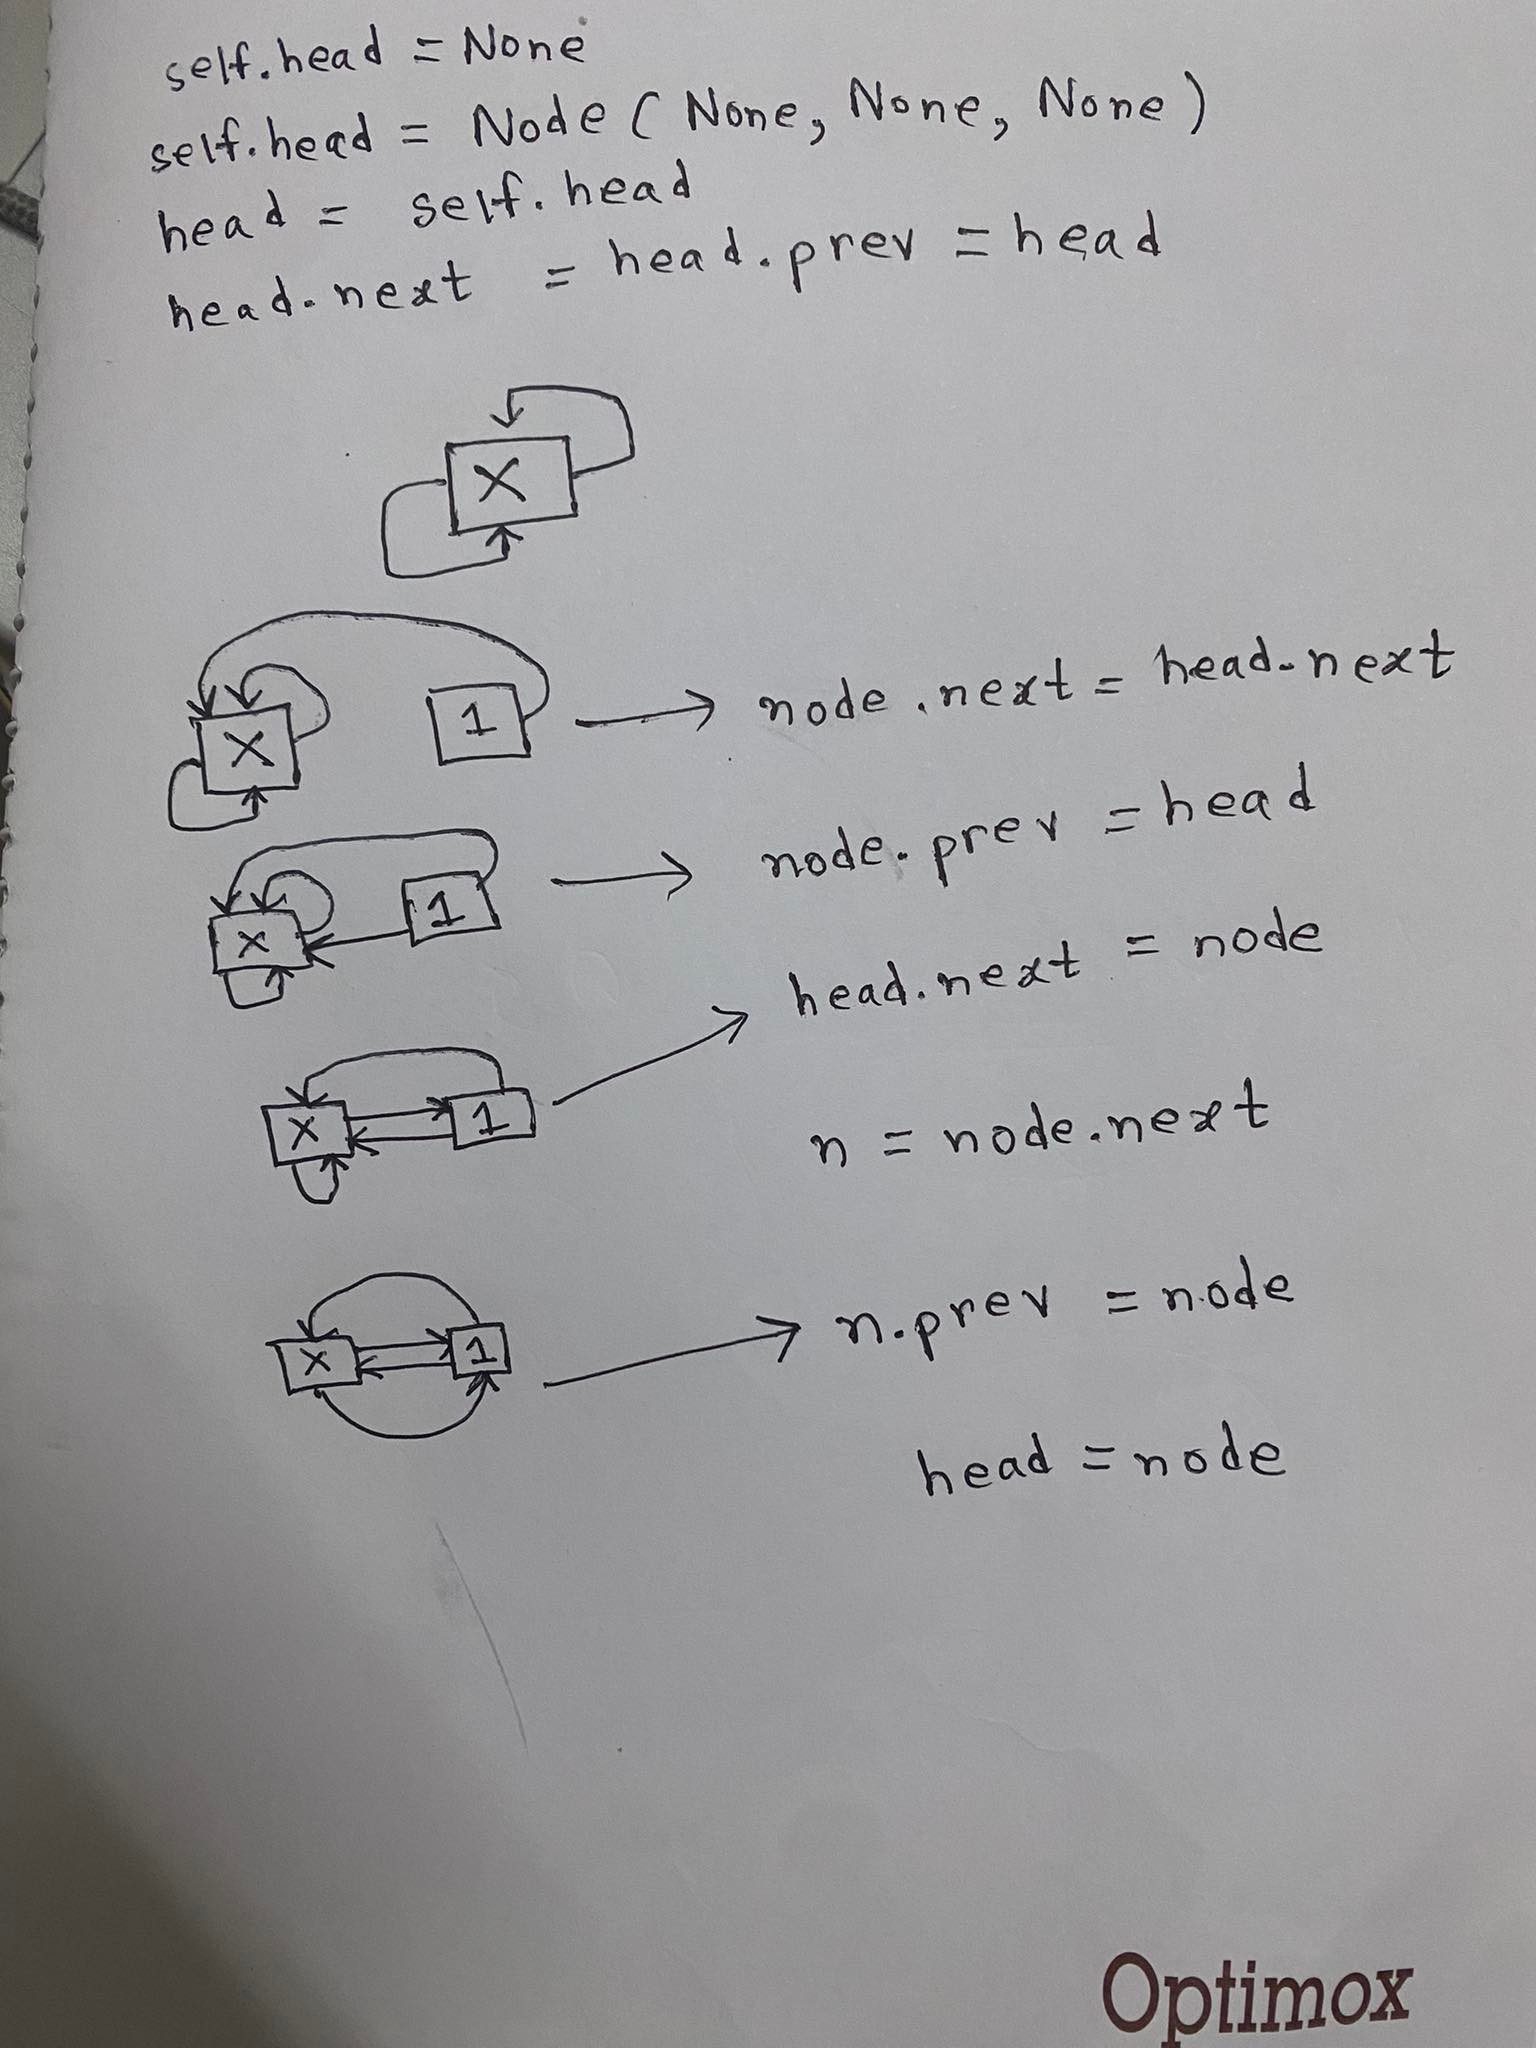 self.head = None
self.head = Node ( None, None, None )
head = self.head
head.next = head.prev = head
X
X 1 → node.next = head.next
X 1 → node.prev = head
X 1 → head.next = node
n = node.next
X 1 → n.prev = node
head = node
Optimox